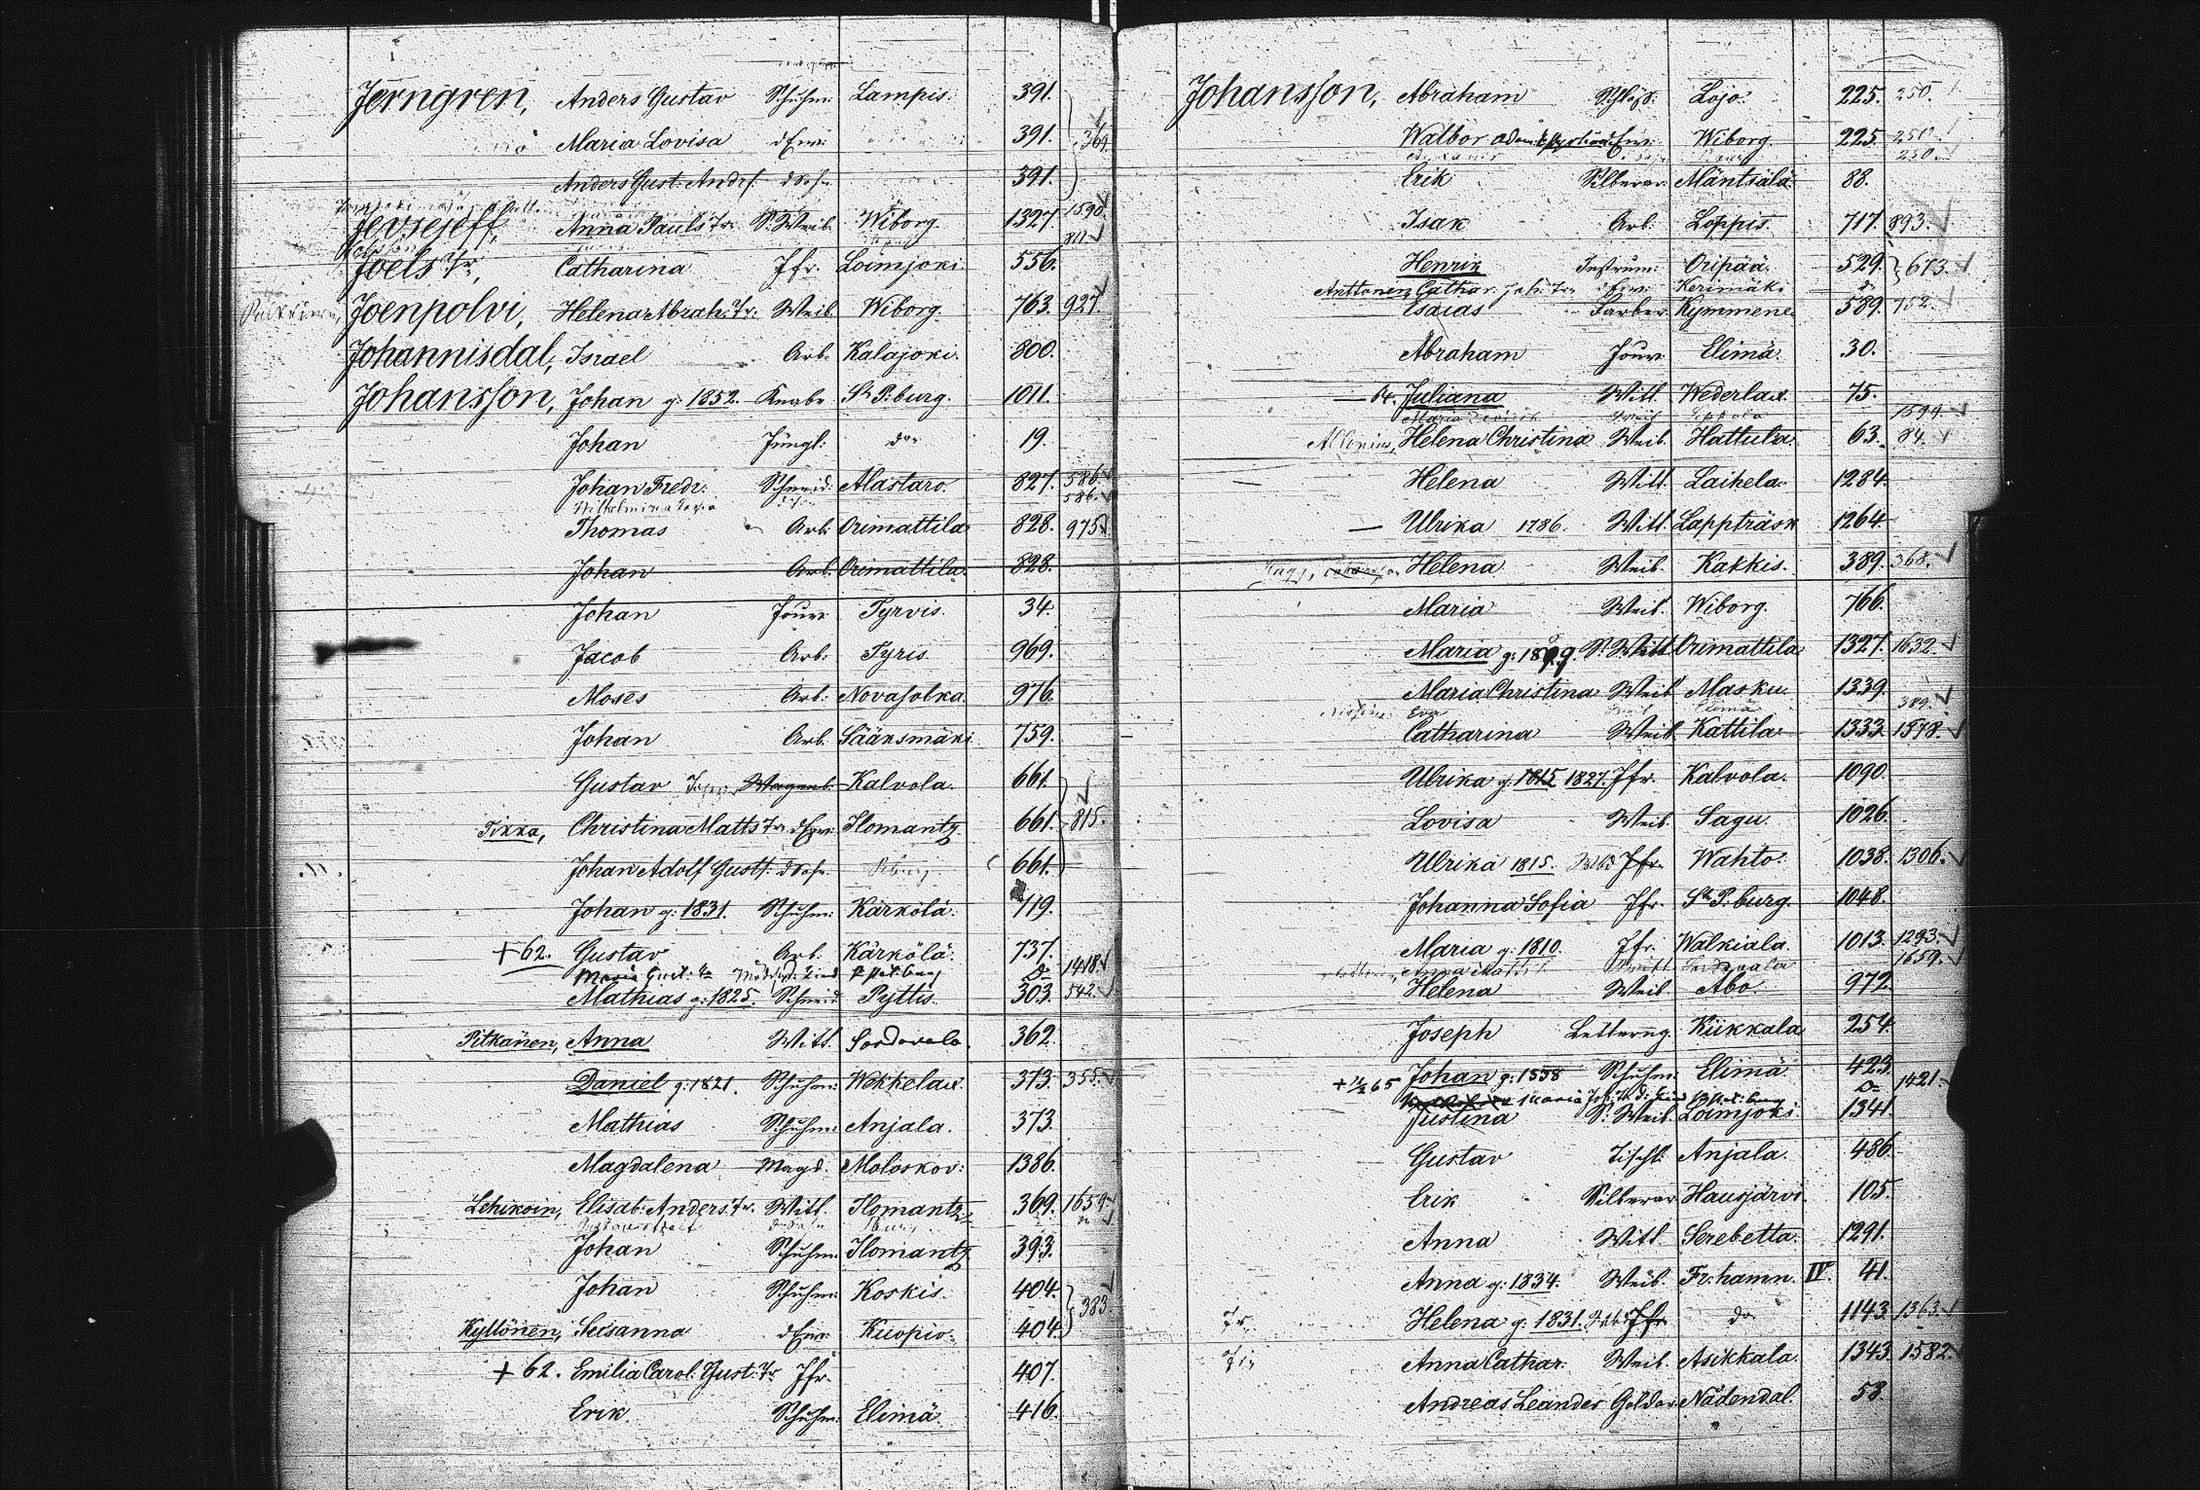 Jerngren, Anders Gustav Schuhm: Lampis. 391.
Maria Lovisa dErw: 391. 369.
Anders Gust. Andrs. dSohn 391.
Jevsejeff, Anna Pauls Tr. S. Weib. Wiborg. 1327. 1590.
811
Joels Tr, Catharina Jfr. Loimjoki 556.
Joenpolvi, Helena Abrah: Tr. Weib. Wiborg. 763. 927.
Johannisdal, Israel Arb. Kalajoki. 800.
Johansson, Johan g: 1852. Knabe St P:burg. 1011.
Johan Jüngl: do 19.
Johan Fredr. Schneid: Alastaro. 827. 586.
Wilhelmina 586.
Thomas Arb. Orimattila 828. 975.
Johan Arb. Orimattila. 828.
Johan Four. Tyrvis. 34.
Jacob Arb: Tyris. 969.
Moses Arb: Novasolka. 976.
Johan Arb. Sääksmäki 759.
Gustav Wagenb. Kalvola. 661.
Tikka, Christina Matts Tr dErw: Ilomantz 661. 815.
Johan Adolf Gusts. dSohn. 661.
Johan g: 1831. Schuhm: Kärkölä. 719.
+62. Gustav Arb. Kärkölä. 737.
Maria Gust. Tr 1418
Mathias g: 1825. Schneid. Pyttis. 303. 542.
Pitkänen, Anna Witt. Sordavala. 362.
Daniel g: 1821. Schuhm: Wekkelax. 373. 355.
Mathias Schuhm: Anjala. 373.
Magdalena Magd. Moloskov: 1386.
Lehikoin, Elisab: Anders Tr. Witt. Ilomantz 369. 1659
Johan Schuhm: Ilomantz 393.
Johan Schuhm: Koskis. 404.
383.
Kyllönen, Susanna dErw: Kuopio. 404.
+62. Emilia Carol. Gust: Tr Jfr. 407.
Erik. Schuhm: Elimä. 416.
Johansson, Abraham Lojo. 225. 250.
Walbor dErw: Wiborg. 225. 250
250.
Erik Silberar: Mäntsälä. 88.
Isak Arb: Loppis. 717. 893.
Henrik Instrum: Oripää. 529. 673.
Anttonen, Cathar. Joh: Tr dErw: Kerimäki do
Esaias Färber. Kymmene. 589. 752.
Abraham Four. Elimä. 30.
64. Juliana Witt. Wederlax. 75.
1594
Allenius, Helena Christina Weib. Hattula 63. 84.
Helena Witt. Laihela. 1284.
Ulrika 1786. Witt. Lappträsk 1264.
Helena Weib. Kakkis. 389. 368.
Maria Weib. Wiborg. 766.
Maria g: 1809. S. Witt Orimattila 1327. 1632.
Maria Christina Weib Masku. 1339.
Eva Elimä 389.
Catharina Weib. Kattila 1333. 1578.
Ulrika g: 1815 1827. Jfr. Kalvola. 1090.
Lovisa Weib. Sagu. 1026.
Ulrika 1815. Jfr. Wahto. 1038. 1306.
Johanna Sofia Jfr. St P: burg. 1048.
Maria g: 1810. Jfr. Walkiala. 1013. 1293.
Anna 1659.
Helena Weib. Abo. 972.
Joseph Kiikkala 254.
65 Johan g: 1838 Schuhm. Elimä. 423.
Maria 1421
Justina S. Weib. Loimjoki 1341.
Gustav Tischl. Anjala. 486.
Erik Silberar Hausjärvi. 105.
Anna Witt. Serebetta. 1291.
Anna g: 1834. Weib. Fr: hamn. IV. 41.
Tr. Helena g: 1831. Jfr do 1143. 1363.
Anna Cathar. Weib. Asikkala. 1343. 1582.
Andreas Leander Goldar. Nådendal. 53.